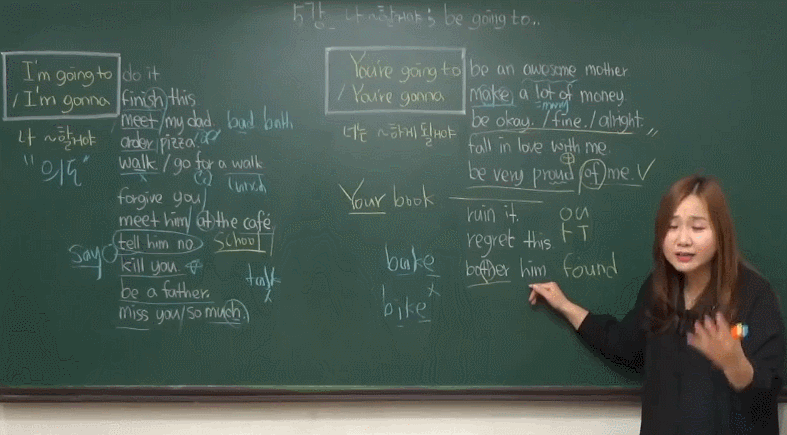 나 ~할게야 ; be going to..
I'm going to
/ I'm gonna
나 ~할게야
"의도"
do it
finish this
meet / my dad. bad bath
order / pizza
walk / go for a walk
forgive you
meet him / at the café
school
say
tell him no.
kill you.
be a father.
miss you / so much.
You're going to
/ You're gonna
너는 ~하게 될 게야
be an awesome mother
make a lot of money
=many
be okay. / fine. / alright.
fall in love with me.
be very proud / of me.
Your book
ruin it. ou
regret this FT
bother him found
bake
bike x